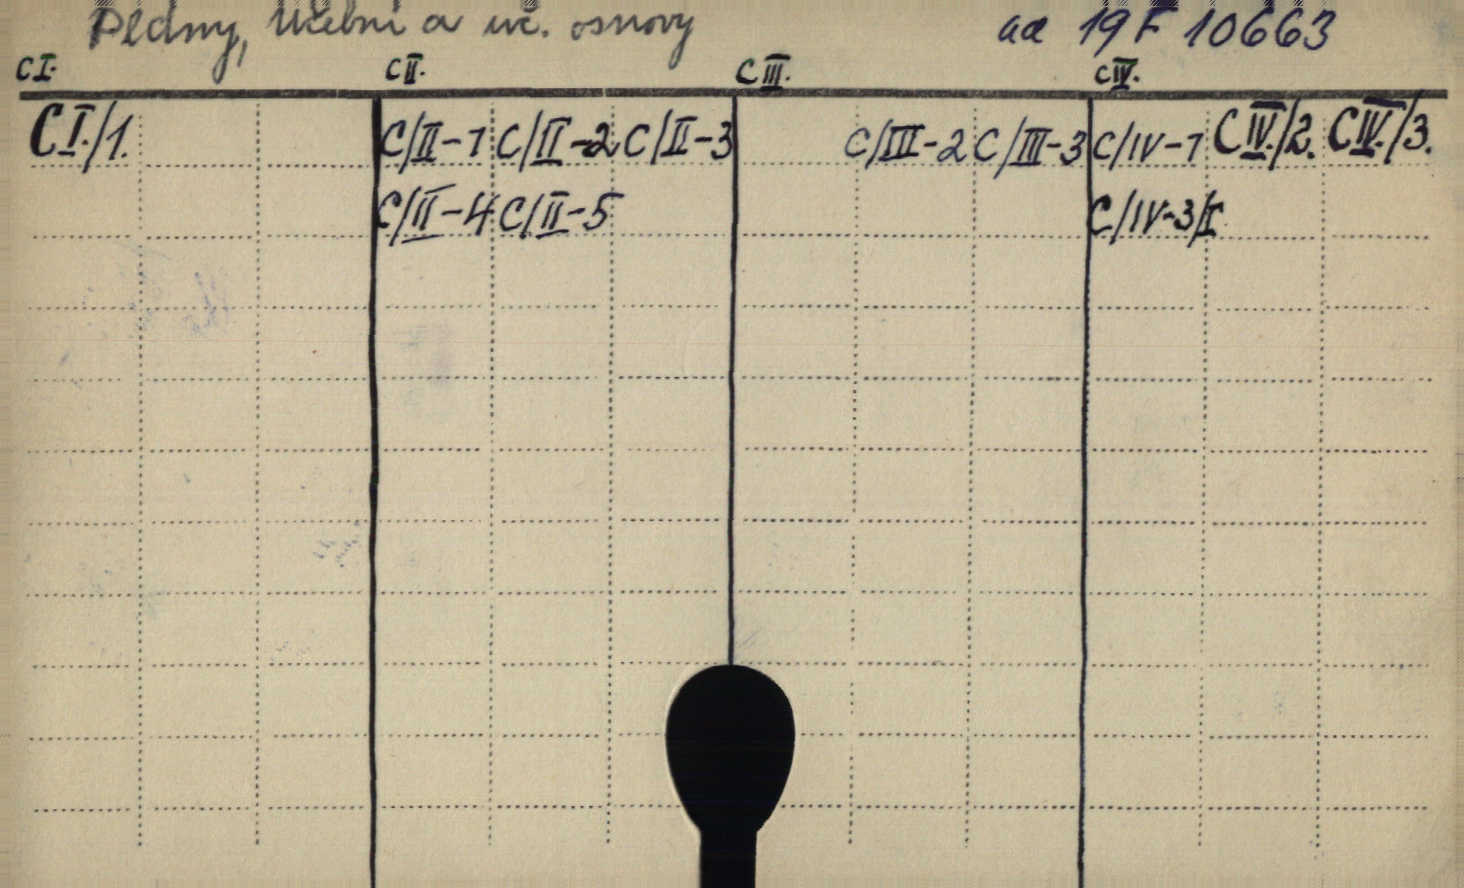 Plány, učební a uč. osnovy ad 19 F 10663
CI. CII. CIII. CIV.
CI./1. C/II-1 C/II-2 C/II-3 C/III-2 C/III-3 C/IV-1 CIV./2. CIV./3.
C/II-4 C/II-5 C/IV-3/I